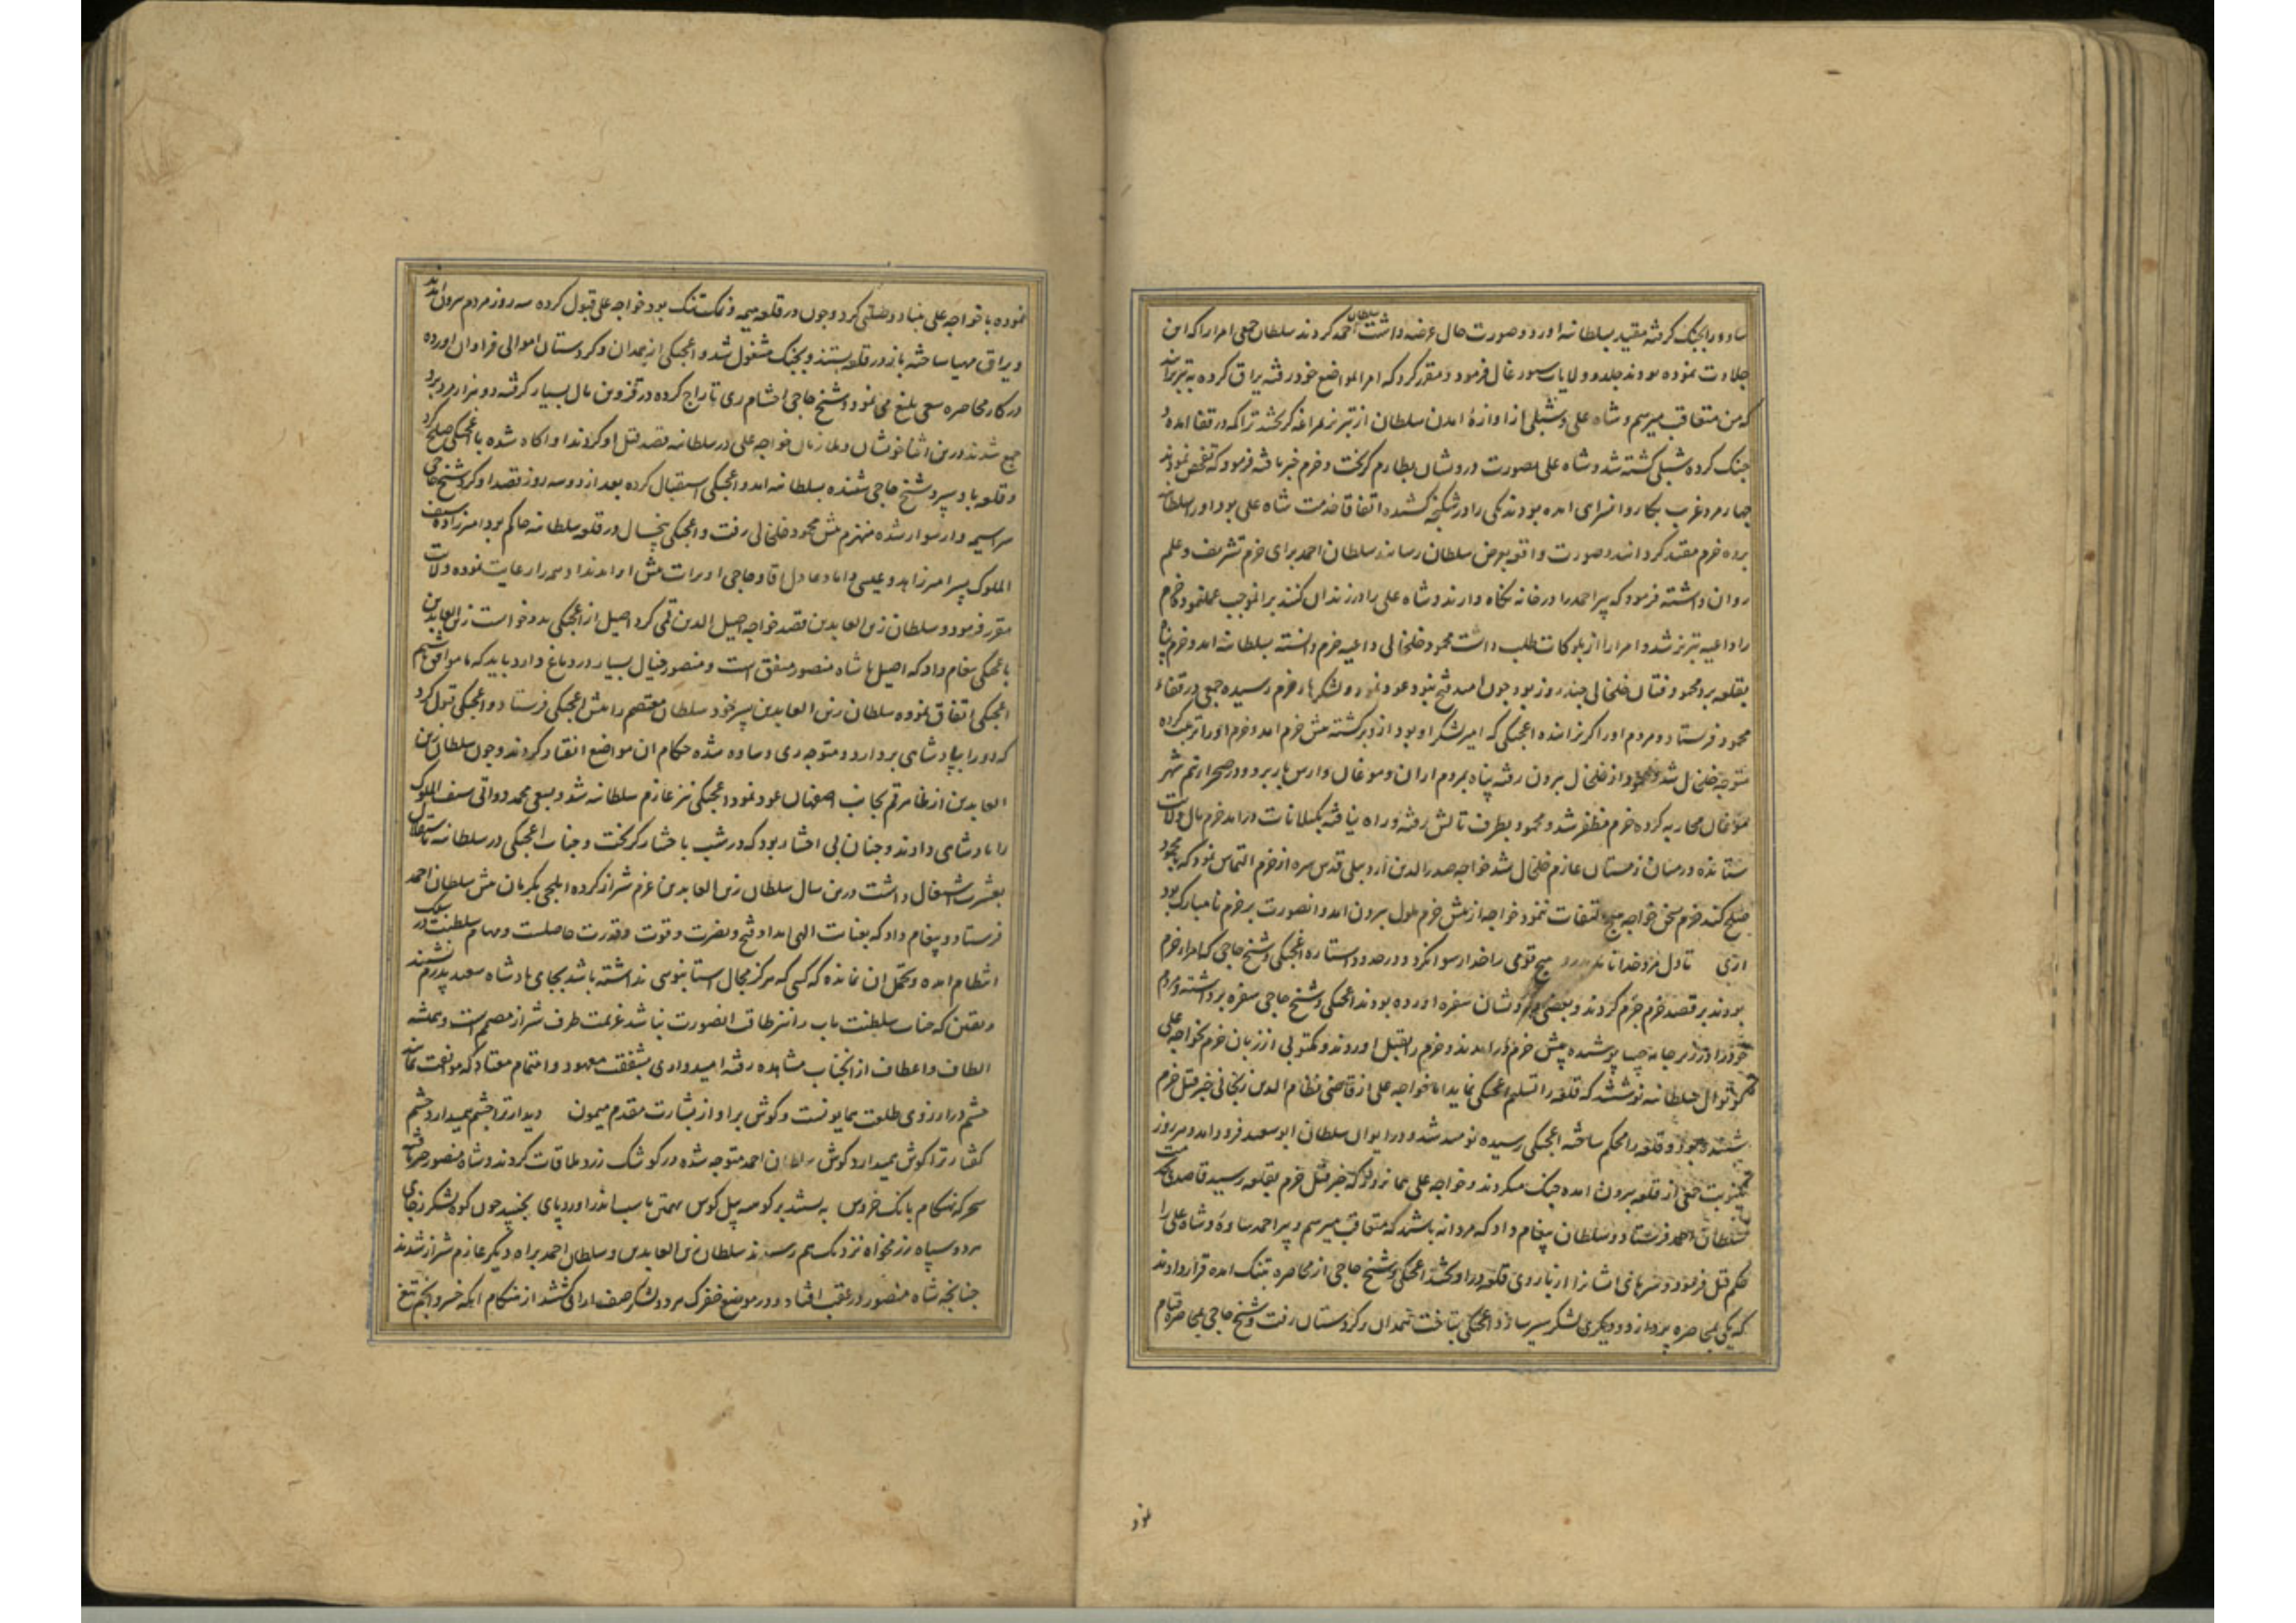 ساوه را بجنک کرفته مقید بسلطانیه اورد و صورت حال عرضه داشت سلطان احمد کردند سلطان جمعی امرا را که این
جلادت نموده بودند جلدو و ولایات سیورغال فرمود و مقرر کرد که امرا بمواضع خود رفته یراق کرده به تبریز ایند
که من متعاقب میرسم و شاه علی و شبلی از اوازهٔ امدن سلطان از تبریز بمراغه کریختند در قفا امده و
جنک کرده شبلی کشته شد و شاه علی بصورت درویشان بطارم کریخت و خرم خبر یافته فرمود که تفحص نمودند
چهار مرد غریب بکاروانسرای امده بودند یکی را در شکنجه کشیدند اتفاقا خدمت شاه علی بود اورا بسلطانیه
برده خرم مقید کردانید و صورت واقعه بعرض سلطان رسانید سلطان احمد برای خرم تشریف و علم
روان داشته فرمود که پیر احمد را در خانه نکاه دارند و شاه علی را در زندان کنند برانموجب عمل نمود و خرم
را داعیه تبریز شد و امرا را از بلوکات طلب داشت محمود خلخالی داعیه خرم دانسته بسلطانیه امد و خرم پناه
بقلعه برد محمود و فتان خلخالی چند روز بود چون امید فتح نبود عود نمود و لشکرها بخرم رسیده جمعی در قفاء
محمود فرستاد و مردم اورا کریزانیده اعجکی که امیر لشکر او بود از وی برکشته پیش خرم امد و خرم اورا تربیت کرده
متوجه خلخال شد و محمود از خلخال بیرون رفته پناه بمردم اران و موغان و ارس بار برد و در صحرا ارتم شهر
موغان محاربه کرده خرم مظفر شد و محمود بطرف تالش رفته و راه نیافته بکیلانات درامد خرم مال ولایت
ستانده در میان زمستان عازم خلخال شد خواجه صدر الدین اردبیلی قدس سره از خرم التماس نمود که با محمود
صلح کند خرم بسخن خواجه هیچ التفات ننمود خواجه از پیش خرم ملول بیرون امد و انصورت بر خرم نامبارک بود
اری تا دل مرد خدا نامد بدرد هیچ قومی را خدا رسوا نکرد و در حدود استاره اعجکی و شیخ حاجی که امراء خرم
بودند بر قصد خرم جزم کردند و بعضی درویشان سفره اورده بودند اعجکی و شیخ حاجی سفره برداشته و مردم
خود را در زیر جامه جیبا پوشیده پیش خرم درامدند و خرم را بقتل اوردند و مکتوبی از زبان خرم بخواجه علی
کوتوال سلطانیه نوشتند که قلعه را تسلیم اعجکی نماید اما خواجه علی از قاضی نظام الدین زنجانی خبر قتل خرم
شنیده بود و قلعه را محکم ساخته اعجکی رسیده نومید شد و در ایوان سلطان ابو سعید فرود امد و هر روز
بنوبت جمعی از قلعه بیرون امده جنک میکردند و خواجه علی همانروز که خبر قتل خرم بقلعه رسید قاصد
بسلطان احمد فرستاد و سلطان پیغام داد که مردانه باشید که متعاقب میرسم و پیر احمد ساوه و شاه علی را
حکم قتل فرمود و سرهای ایشانرا از باروی قلعه دراویختند اعجکی و شیخ حاجی از محاصره بتنک امده قرار دادند
که یکی بمحاصره پردازد و دیکری لشکر سیر سازد و اعجکی بتاخت همدان و کردستان رفت و شیخ حاجی بمحاصره قیام
نمود
نموده با خواجه علی بنیاد دوستی کرد و چون در قلعه هیمه و نمک تنک بود خواجه علی قبول کرده سه روز مردم بیرون امدند
و یراق مهیا ساخته باز در قلعه بستند و بجنک مشغول شد و اعجکی از همدان و کردستان اموالی فراوان اورده
در کار محاصره سعی بلیغ می نمود و شیخ حاجی احشام ری تاراج کرده در قزوین مال بسیار کرفته دو هزار مرد برو
جمع شدند درین اثنا خویشان و ملازمان خواجه علی در سلطانیه قصد قتل او کردند او اکاه شده با اعجکی صلح کرد
و قلعه باو سپرد شیخ حاجی شنیده بسلطانیه امد و اعجکی استقبال کرده بعد از دو سه روز قصد او کرد شیخ حاجی
سراسیمه وار سوار شده منهزم پیش محمود خلخالی رفت و اعجکی پنج سال در قلعه سلطانیه حاکم بود امیرزاده سیف
الملوک پسر امیر زاهد و عیسی داماد عادل اقا و حاجی اویرات پیش او امدند او همه را رعایت نموده ولایت
مقرر فرمود و سلطان زین العابدین قصد خواجه اصیل الدین قمی کرد اصیل از اعجکی مدد خواست زین العابدین
باعجکی پیغام داد که اصیل با شاه منصور متفق است و منصور خیال بسیار در دماغ دارد باید که ما موافق باشیم
اعجکی اتفاق نموده سلطان زین العابدین پسر خود سلطان معتصم را پیش اعجکی فرستاد و اعجکی قبول کرد
که او را بپادشاهی بردارد و متوجه ری و ساوه شده حکام ان مواضع انقیاد کردند و چون سلطان زین
العابدین از ظاهر قم بجانب اصفهان عود نمود اعجکی نیز عازم سلطانیه شد و بسعی محمد دواتی سیف الملوک
را پادشاهی دادند و چنان بی اختیار بود که در شب با حشار کریخت و جناب اعجکی در سلطانیه باستقلال
بعشرت اشتغال داشت درین سال سلطان زین العابدین عزم شیراز کرده ایلچی بکرمان پیش سلطان احمد
فرستاد و پیغام داد که بعنایت الهی امداد فتح و نصرت و قوت و قدرت حاصلست و مهام سلطنت در سلک
انتظام امده و تحمل ان نمانده که کسی که هرکز مجال استانبوسی نداشته باشد بجای پادشاه سعید پدرم نشیند
و یقین که جناب سلطنت ماب را نیز طاقت انصورت نباشد عزیمت طرف شیراز مصمم است و همیشه
الطاف و اعطاف از انجناب مشاهده رفته امیدواری بشفقت معهود و اهتمام معتاد که موافقت نمایند
چشم در ارزوی طلعت همایونست و کوش براواز بشارت مقدم میمون دیدار ترا چشم همیدارد چشم
کفتار ترا کوش همیدارد کوش سلطان احمد متوجه شده در کوشک زرد ملاقات کردند و شاه منصور خبر یافته
سحرکه بهنکام بانک خروس به بستند بر کوهه پیل کوس تهمتن باسب اندر اورد پای بجنبید چون کوه لشکر ز جای
هر دو سپاه رزمخواه نزدیک هم رسیدند سلطان زین العابدین و سلطان احمد براه دیکر عازم شیراز شدند
چنانچه شاه منصور در عقب افتاد و در موضع خفرک هر دو لشکر صف ارای کشتند از هنکام انکه خسرو انجم تیغ